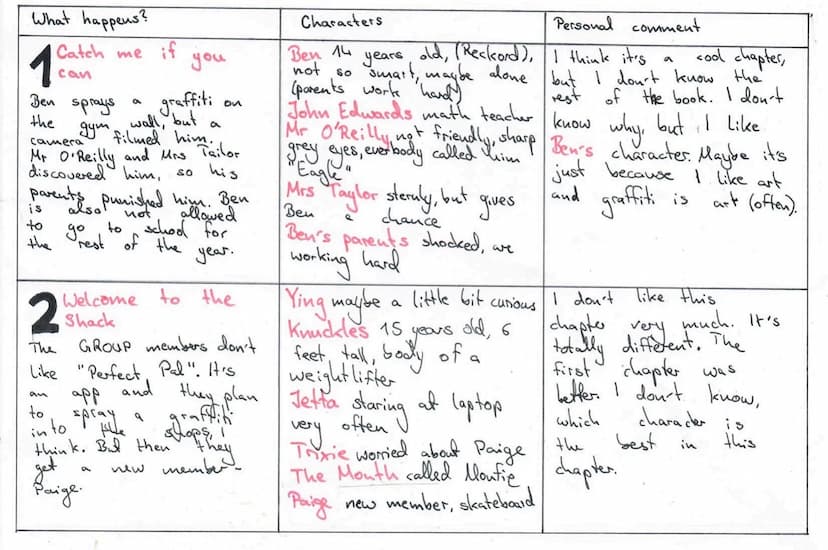 What happens?
Characters
Personal comment
1 Catch me if you
can
Ben sprays a graffiti on
the gym wall, but a
camera filmed him.
Mr O'Reilly and Mrs Tailor
discovered him, so his
parents punished him. Ben
is also not allowed
to go to school for
the rest of the year.
Ben 14 years old, (Reckord),
not so smart, maybe alone
(parents work hard)
John Edwards math teacher
Mr O'Reilly not friendly, sharp
grey eyes, everbody called him
"Eagle"
Mrs Taylor sternly, but gives
Ben a chance
Ben's parents shocked, are
working hard
I think it's a cool chapter,
but I don't know the
rest of the book. I don't
know why, but I like
Ben's character. Maybe it's
just because I like art
and graffiti is art (often).
2 Welcome to the
Shack
The GROUP members don't
like "Perfect Pal". It's
an app and they plan
to spray a graffiti
into the shops, I
think. But then they
get a new member-
Paige.
Ying maybe a little bit curious
Knuckles 15 years old, 6
feet, tall, body of a
weightlifter
Jetta staring at laptop
very often
Trixie worried about Paige
The Mouth called Moufie
Paige new member, skateboard
I don't like this
chapter very much. It's
totally different. The
first chapter was
better. I don't know,
which character is
the best in this
chapter.